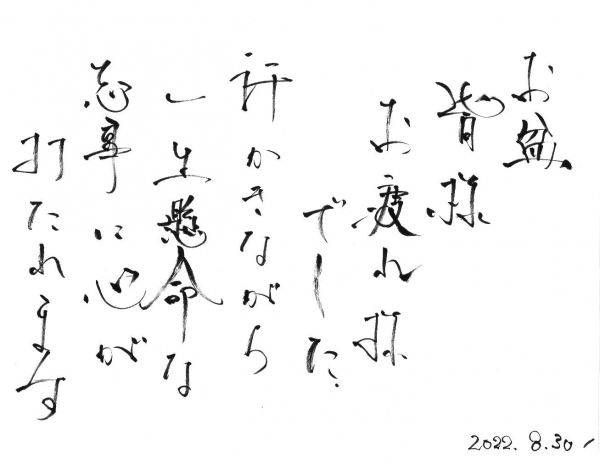 お盆
皆様
お疲れ様
でした
汗かきながら
一生懸命な
志事に心が
打たれます
2022. 8.30